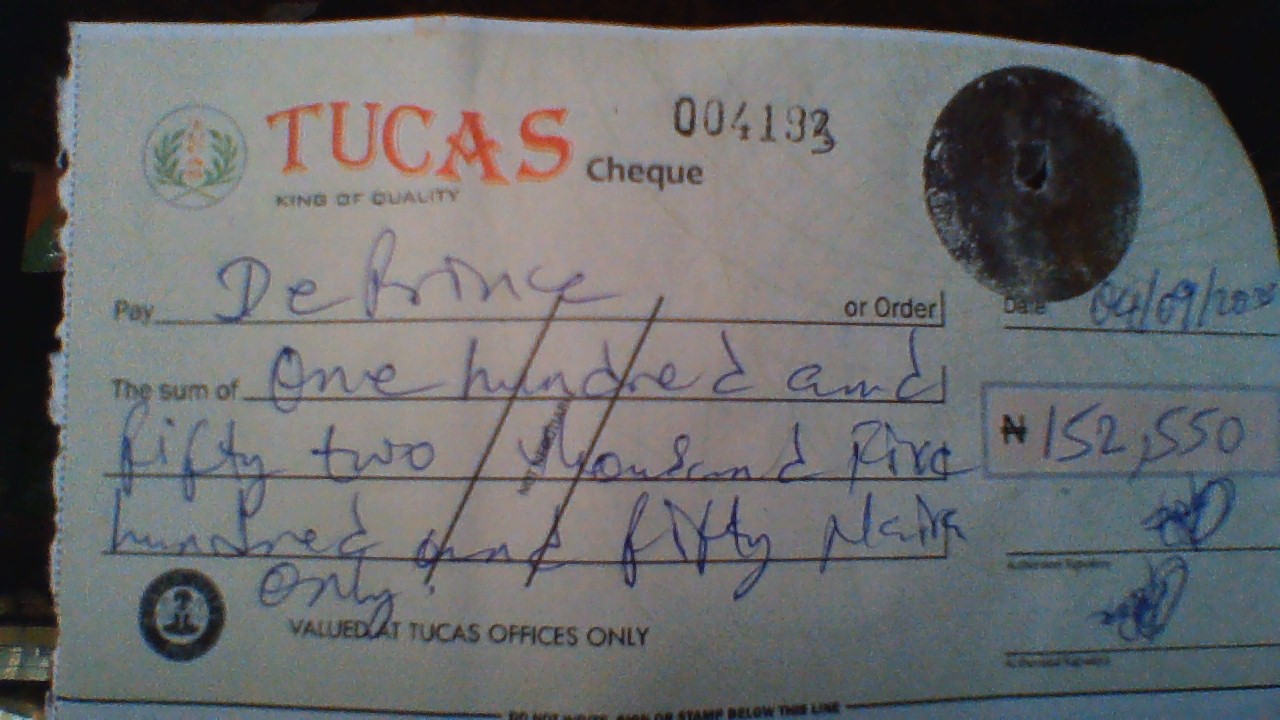 TUCAS Cheque
KING OF QUALITY
004193
Pay De Prince or Order
Date 04/09/
The sum of One hundred and
fifty two thousand Five
₦ 152,550
hundred and fifty Naira
Only.
Authorised Signature
VALUED AT TUCAS OFFICES ONLY
Authorised Signature
DO NOT WRITE, SIGN OR STAMP BELOW THIS LINE